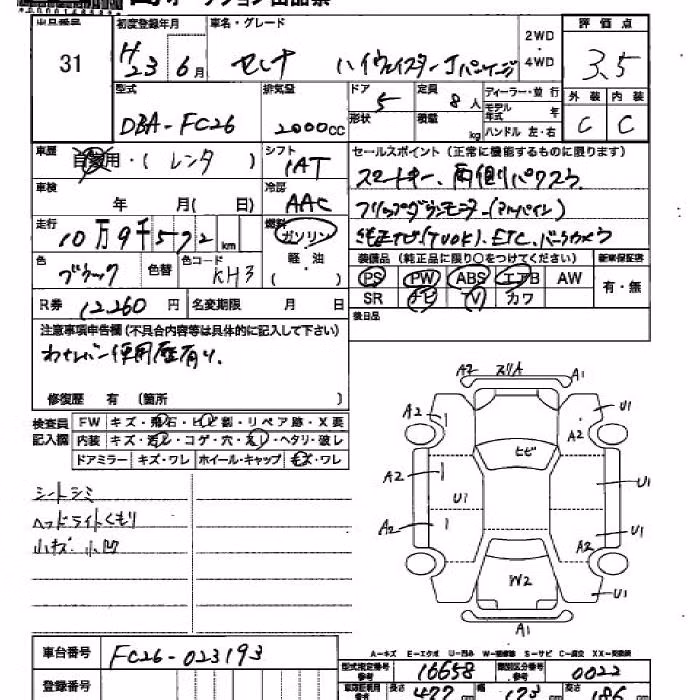 オークション出品票
出品番号 初度登録年月 車名・グレード 評価点
31 H23 6月 セレナ ハイウェイスターJパッケージ 2WD・4WD 3.5
型式 排気量 ドア 定員 ディーラー・並行 外装 内装
DBA-FC26 2000cc 5 8人 モデル年式 年 C C
形状 積載 kg ハンドル 左・右
車歴 自家用・( レンタ ) シフト 1AT セールスポイント(正常に機能するものに限ります)
車検 年 月( 日) 冷房 AAC スマートキー、両側パワスラ
フリップダウンモニター(アルパイン)
走行 10万9千572km 燃料 ガソリン 純正ナビ(TVOK)、ETC、バックカメラ
色 ブラック 色替 色コード KH3 軽・油 装備品(純正品に限り○をつけてください) 新車保証書
PS PW ABS エアB AW 有・無
R券 12,260円 名変期限 月 日 SR ナビ TV カワ
注意事項申告欄(不具合内容等は具体的に記入して下さい) 後日品
わナンバー使用歴有り、
修復歴 有 (箇所 )
検査員 FW キズ・飛石・ヒビ割・リペア跡・X要
記入欄 内装 キズ・汚レ・コゲ・穴・スレ・ヘタリ・破レ
ドアミラー キズ・ワレ ホイール・キャップ キズ・ワレ
シートシミ
ヘッドライトくもり
小キズ・小凹
A2 スリA A1
A2 A2 U1
ヒビ
A2 U1 U1
A2 A2 U1
W2 U1
A1
A-キズ E-エクボ U-凹み W-補修跡 S-サビ C-腐食 XX-交換済
車台番号 FC26-023193 型式指定番号 参考 16658 類別区分番号 参考 0022
登録番号 長さ 477cm 幅 173 高さ 186